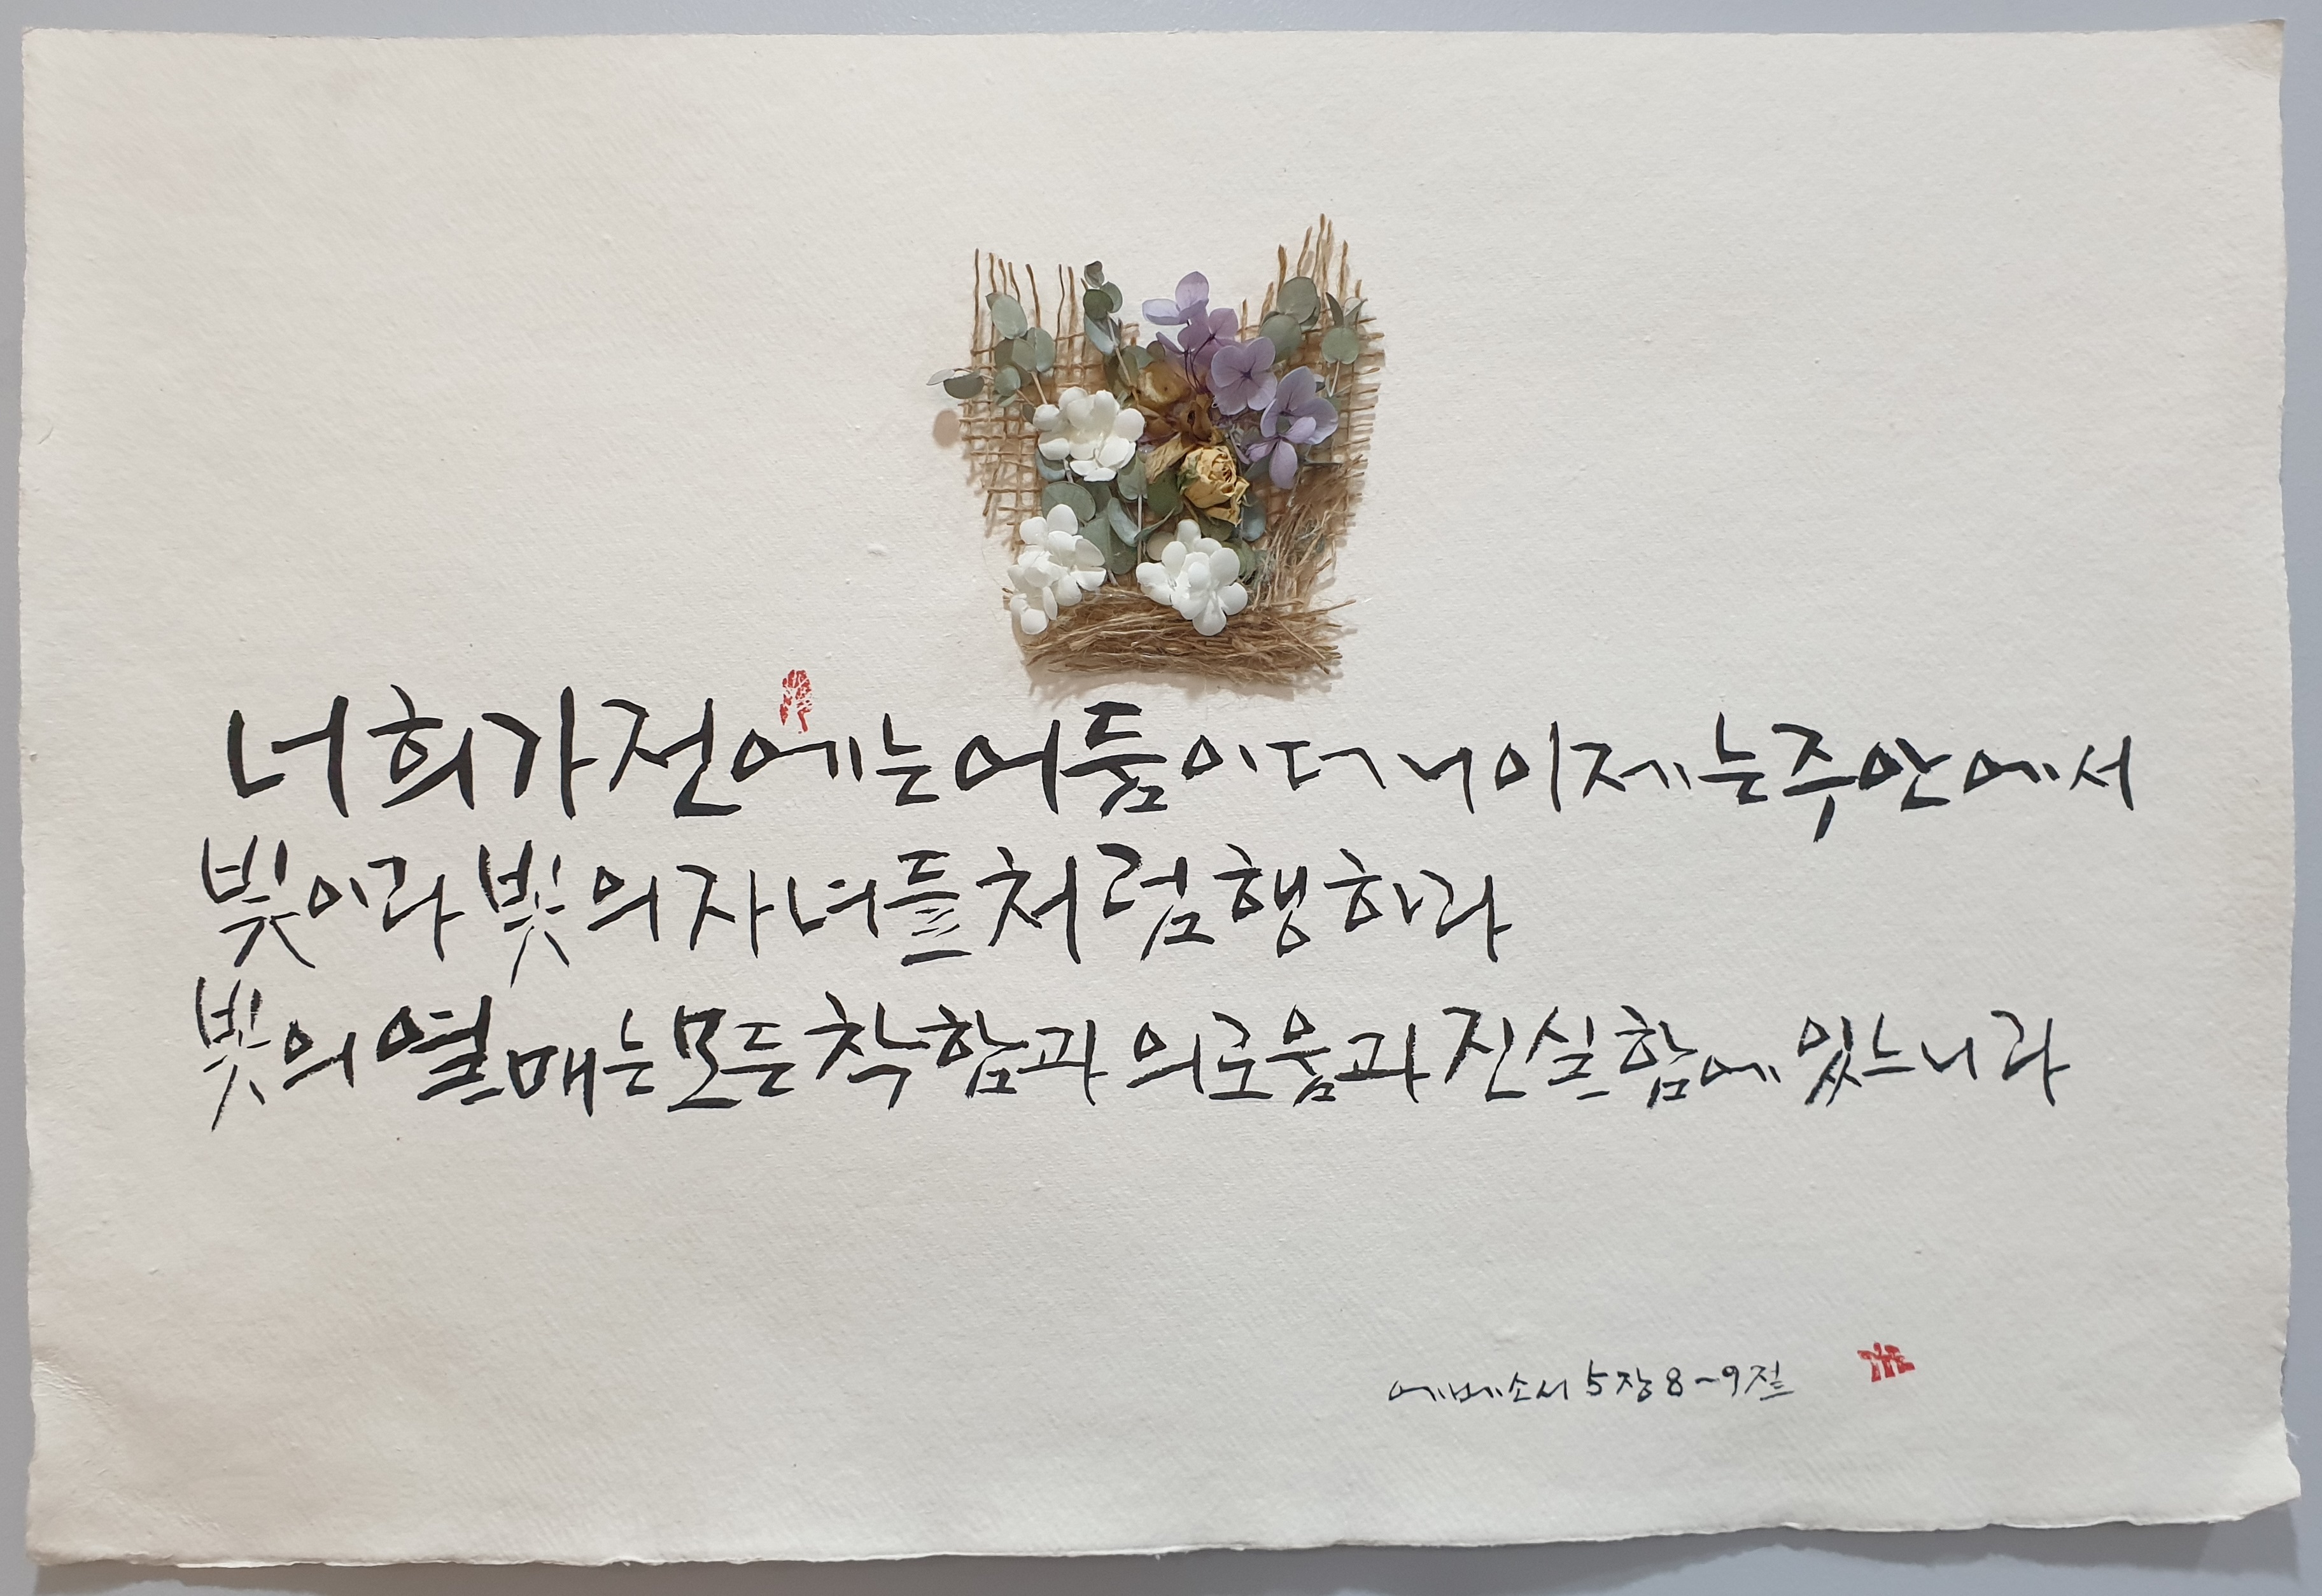 너희가 전에는 어둠이더니 이제는 주 안에서
빛이라 빛의 자녀들처럼 행하라
빛의 열매는 모든 착함과 의로움과 진실함에 있느니라
에베소서 5장 8~9절